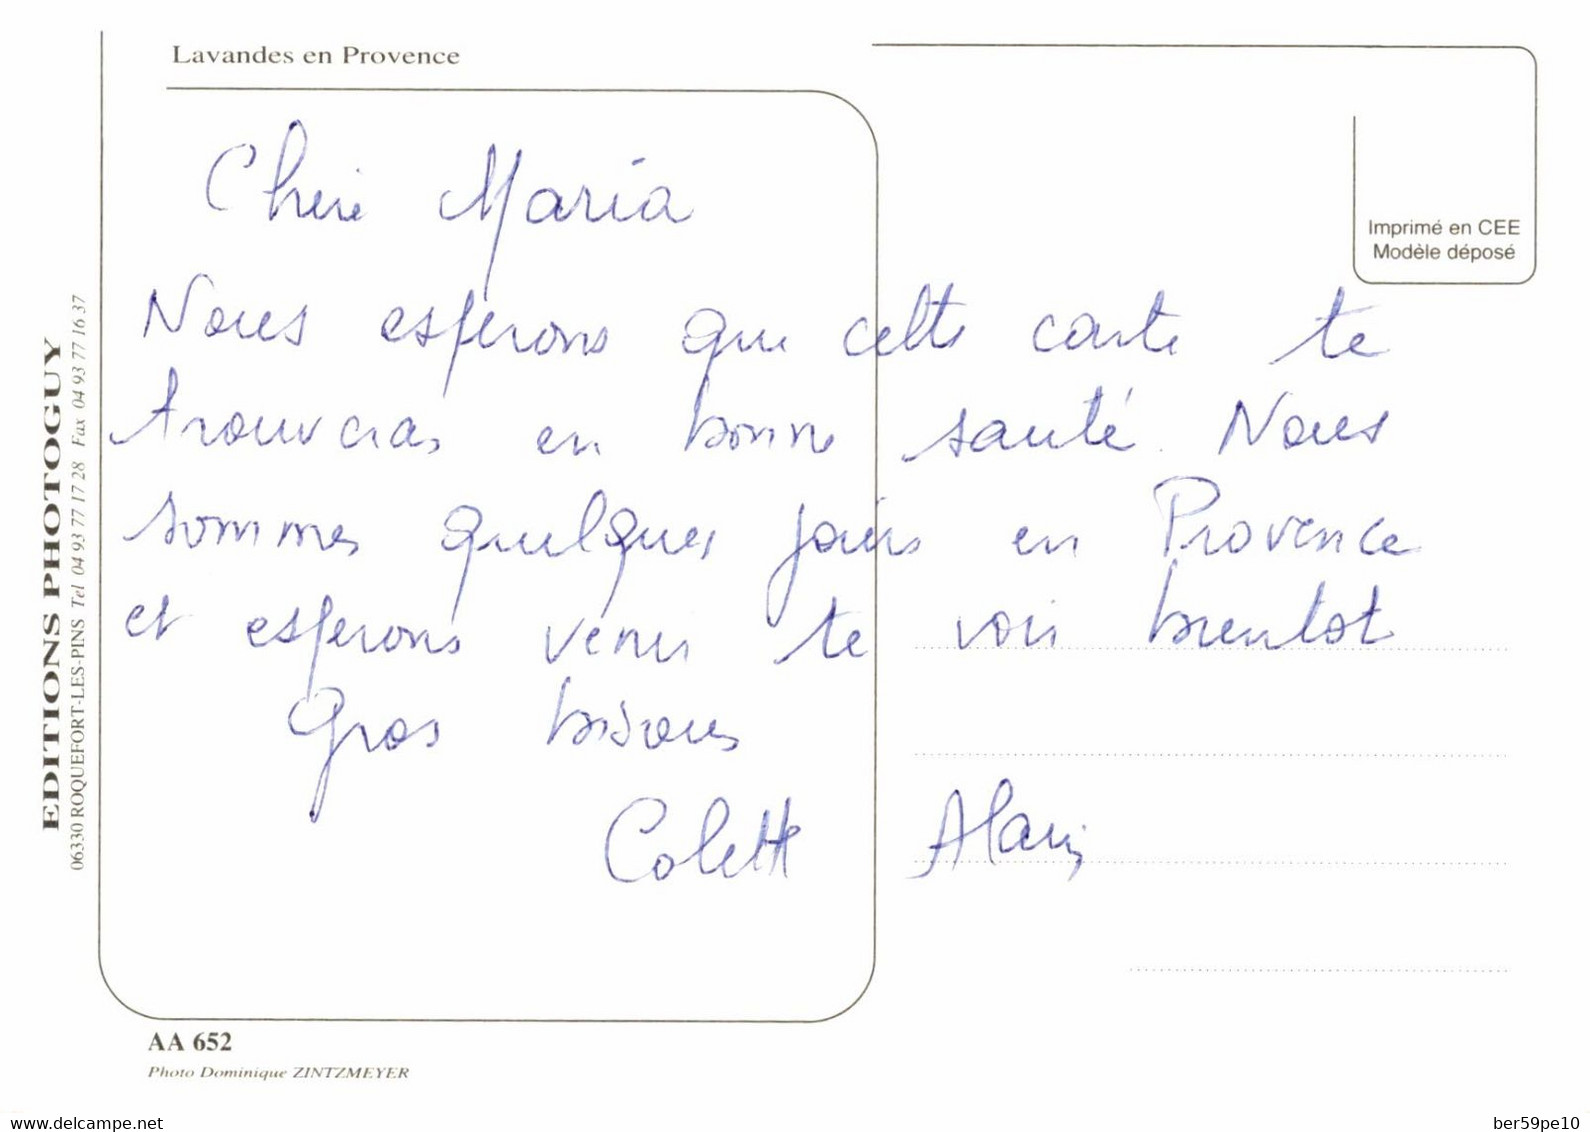 Lavandes en Provence
Imprimé en CEE
Modèle déposé
Chère Maria
Nous esperons que cette carte te
trouveras en bonne santé. Nous
sommes quelques jours en Provence
et esperons venir te voir bientot
Gros bisous
Colette Alain
EDITIONS PHOTOGUY
06330 ROQUEFORT-LES-PINS Tel 04 93 77 17 28 Fax 04 93 77 16 37
AA 652
Photo Dominique ZINTZMEYER
delcampe.net
ber59pe10